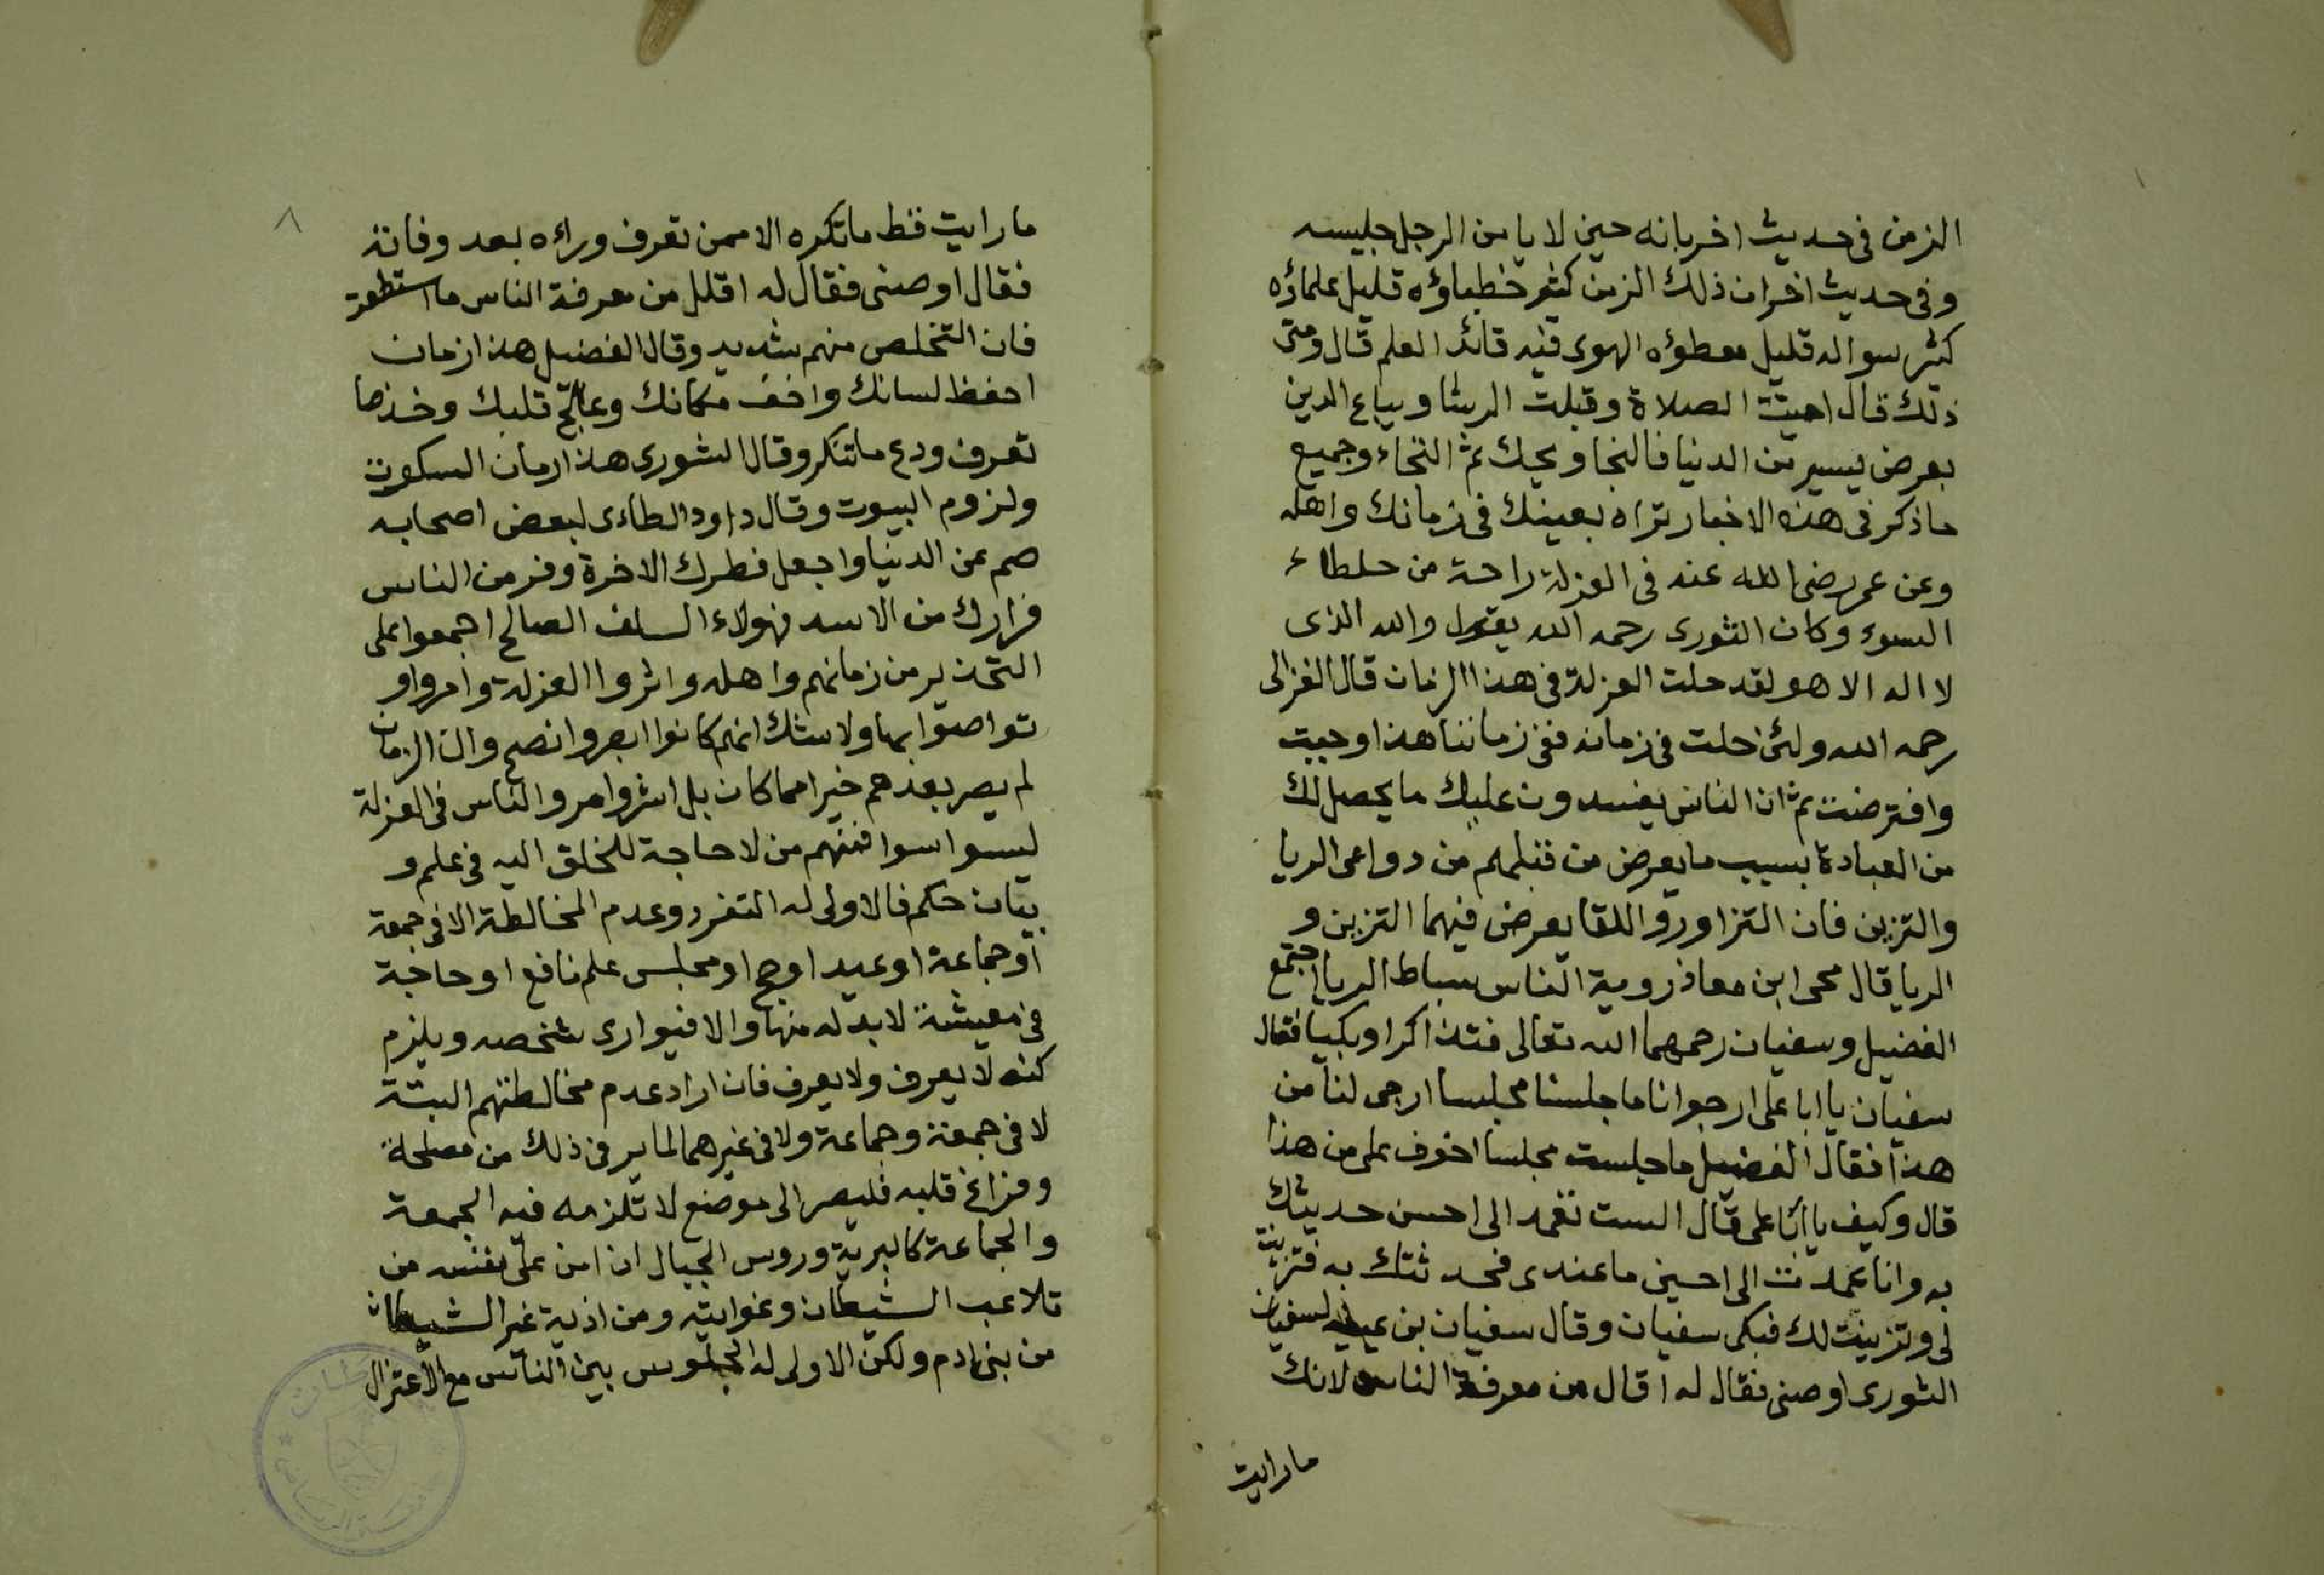 الزمن فى حديث اخر بانه حين لا يامن الرجل جليسه
وفى حديث اخر ان ذلك الزمن كثير خطباؤه قليل علماؤه
كثير سواله قليل معطؤه الهوى فيه قائد العلم قال ومتى
ذلك قال اميتت الصلاة وقبلت الرشا ويباع الدين
بعرض يسير من الدنيا فالنجا ويحك ثم النجاء وجميع
ماذكر فى هذه الاخبار تراه بعينك فى زمانك واهله
وعن عمر رضى الله عنه فى العزلة راحة من خلطاء
السوء وكان الثورى رحمه الله يقول والله الذى
لا اله الا هو لقد حلت العزلة فى هذا الزمان قال الغزالى
رحمه الله ولئن حلت فى زمانه ففى زماننا هذا وجبت
وافترضت ثم ان الناس يفسدون عليك ما يحصل لك
من العبادة بسبب ما يعرض من قبلهم من دواعى الريا
والتزين فان التزاور واللقا يعرض فيهما التزين و
الريا قال يحى ابن معاذ روية الناس بساط الريا اجتمع
الفضيل وسفيان رحمهما الله تعالى فتذاكرا وبكيا فقال
سفيان يا ابا على ارجوا انا ما جلسنا مجلسا ارجى لنا من
هذا فقال الفضيل ما جلست مجلسا اخوف على من هذا
قال وكيف يا ابا على قال الست تعمد الى احسن حديثك
به وانا عمدت الى احسن ما عندى فحدثتك به فتزينت
لى وتزينت لك فبكى سفيان وقال سفيان بن عيينه لسفيان
الثورى اوصنى فقال له اقال من معرفة الناس لانك
مارايت
٨
مارايت قط ماتكره الا ممن تعرف وراءه بعد وفاته
فقال اوصنى فقال له اقلل من معرفة الناس ما استطعت
فان التخلص منهم شديد وقال الفضيل هذا زمان
احفظ لسانك واخف مكانك وعالج قلبك وخذ ما
تعرف ودع ماتنكر وقال الثورى هذا زمان السكوت
ولزوم البيوت وقال داود الطاءى لبعض اصحابه
صم عن الدنيا واجعل فطرك الاخرة وفر من الناس
فرارك من الاسد فهولاء السلف الصالح اجمعوا على
التحذير من زمانهم واهله واثروا العزلة وامروا و
تواصوا بها ولا شك انهم كانوا ابصر وانصح وان الزمان
لم يصر بعدهم خيرا مما كان بل اشر وامر والناس فى العزلة
ليسوا سوا فمنهم من لا حاجة للخلق اليه فى علم و
بيان حكم فالاولى له التفرد وعدم المخالطة الا فى جمعة
او جماعة او عيد او حج او مجلس علم نافع او حاجة
فى معيشة لابد له منها والا فيوارى شخصه ويلزم
كنه لا يعرف ولا يعرف فان اراد عدم مخالطتهم البتة
لا فى جمعة وجماعة ولا فى غيرهما لما يرى فى ذلك من مصلحة
وفراغ قلبه فليصر الى موضع لا تلزمه فيه الجمعة
والجماعة كالبرية وروس الجبال ان امن على نفسه من
تلاعب الشيطان وغوايته ومن اذية غير الشيطان
من بنى ادم ولكن الاولى له الجلوس بين الناس مع الاعتزال